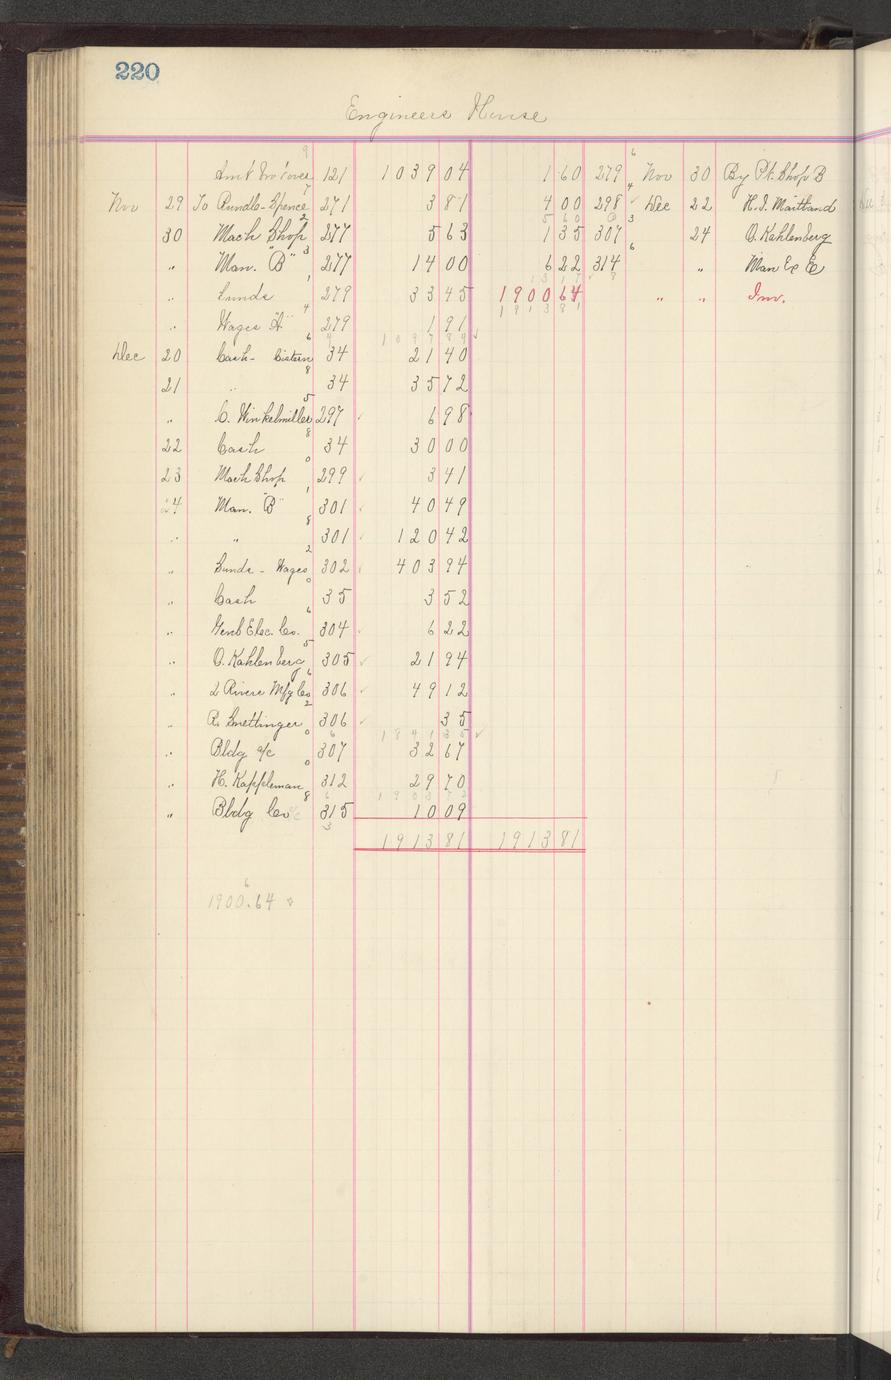 220
Engineers House
Amt Bro't over 121 1039 04 1 60 279 Nov 30 By Pt. Shop B
Nov 29 To Rundle-Spence 271 3 81 4 00 298 Dec 22 H.I. Maitland
5 60
30 Mach Shop 277 5 63 1 35 307 24 O. Kahlenberg
" Man. "B" 277 14 00 6 22 314 " Man Ex E
13 17
" Sunds 279 33 45 1900 64 " " Inv.
1913 81
" Wages "A" 279 1 91
1097 84
Dec 20 Cash - Cistern 34 21 40
21 " 34 35 72
" C. Winkelmiller 297 6 98
22 Cash 34 30 00
23 Mach Shop 299 3 41
24 Man. "B" 301 40 49
" " 301 120 42
" Sunds - Wages 302 403 94
" Cash 35 3 52
" Genl Elec. Co. 304 6 22
" O. Kahlenberg 305 21 94
" 2 Rivers Mfg Co 306 49 12
" R. Smettinger 306 35
1841 35
" Bldg a/c 307 32 67
" H. Kappleman 312 29 70
1903 72
" Bldg Co 315 10 09
1913 81 1913 81
1900.64